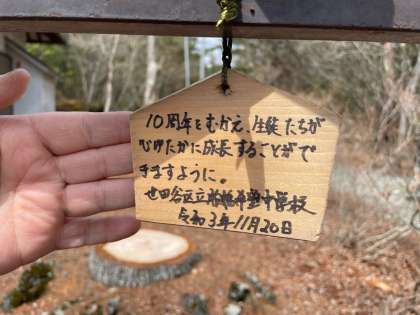 10周年をむかえ、生徒たちが
心ゆたかに成長することがで
きますように。
世田谷区立船橋希望中学校
令和3年11月20日